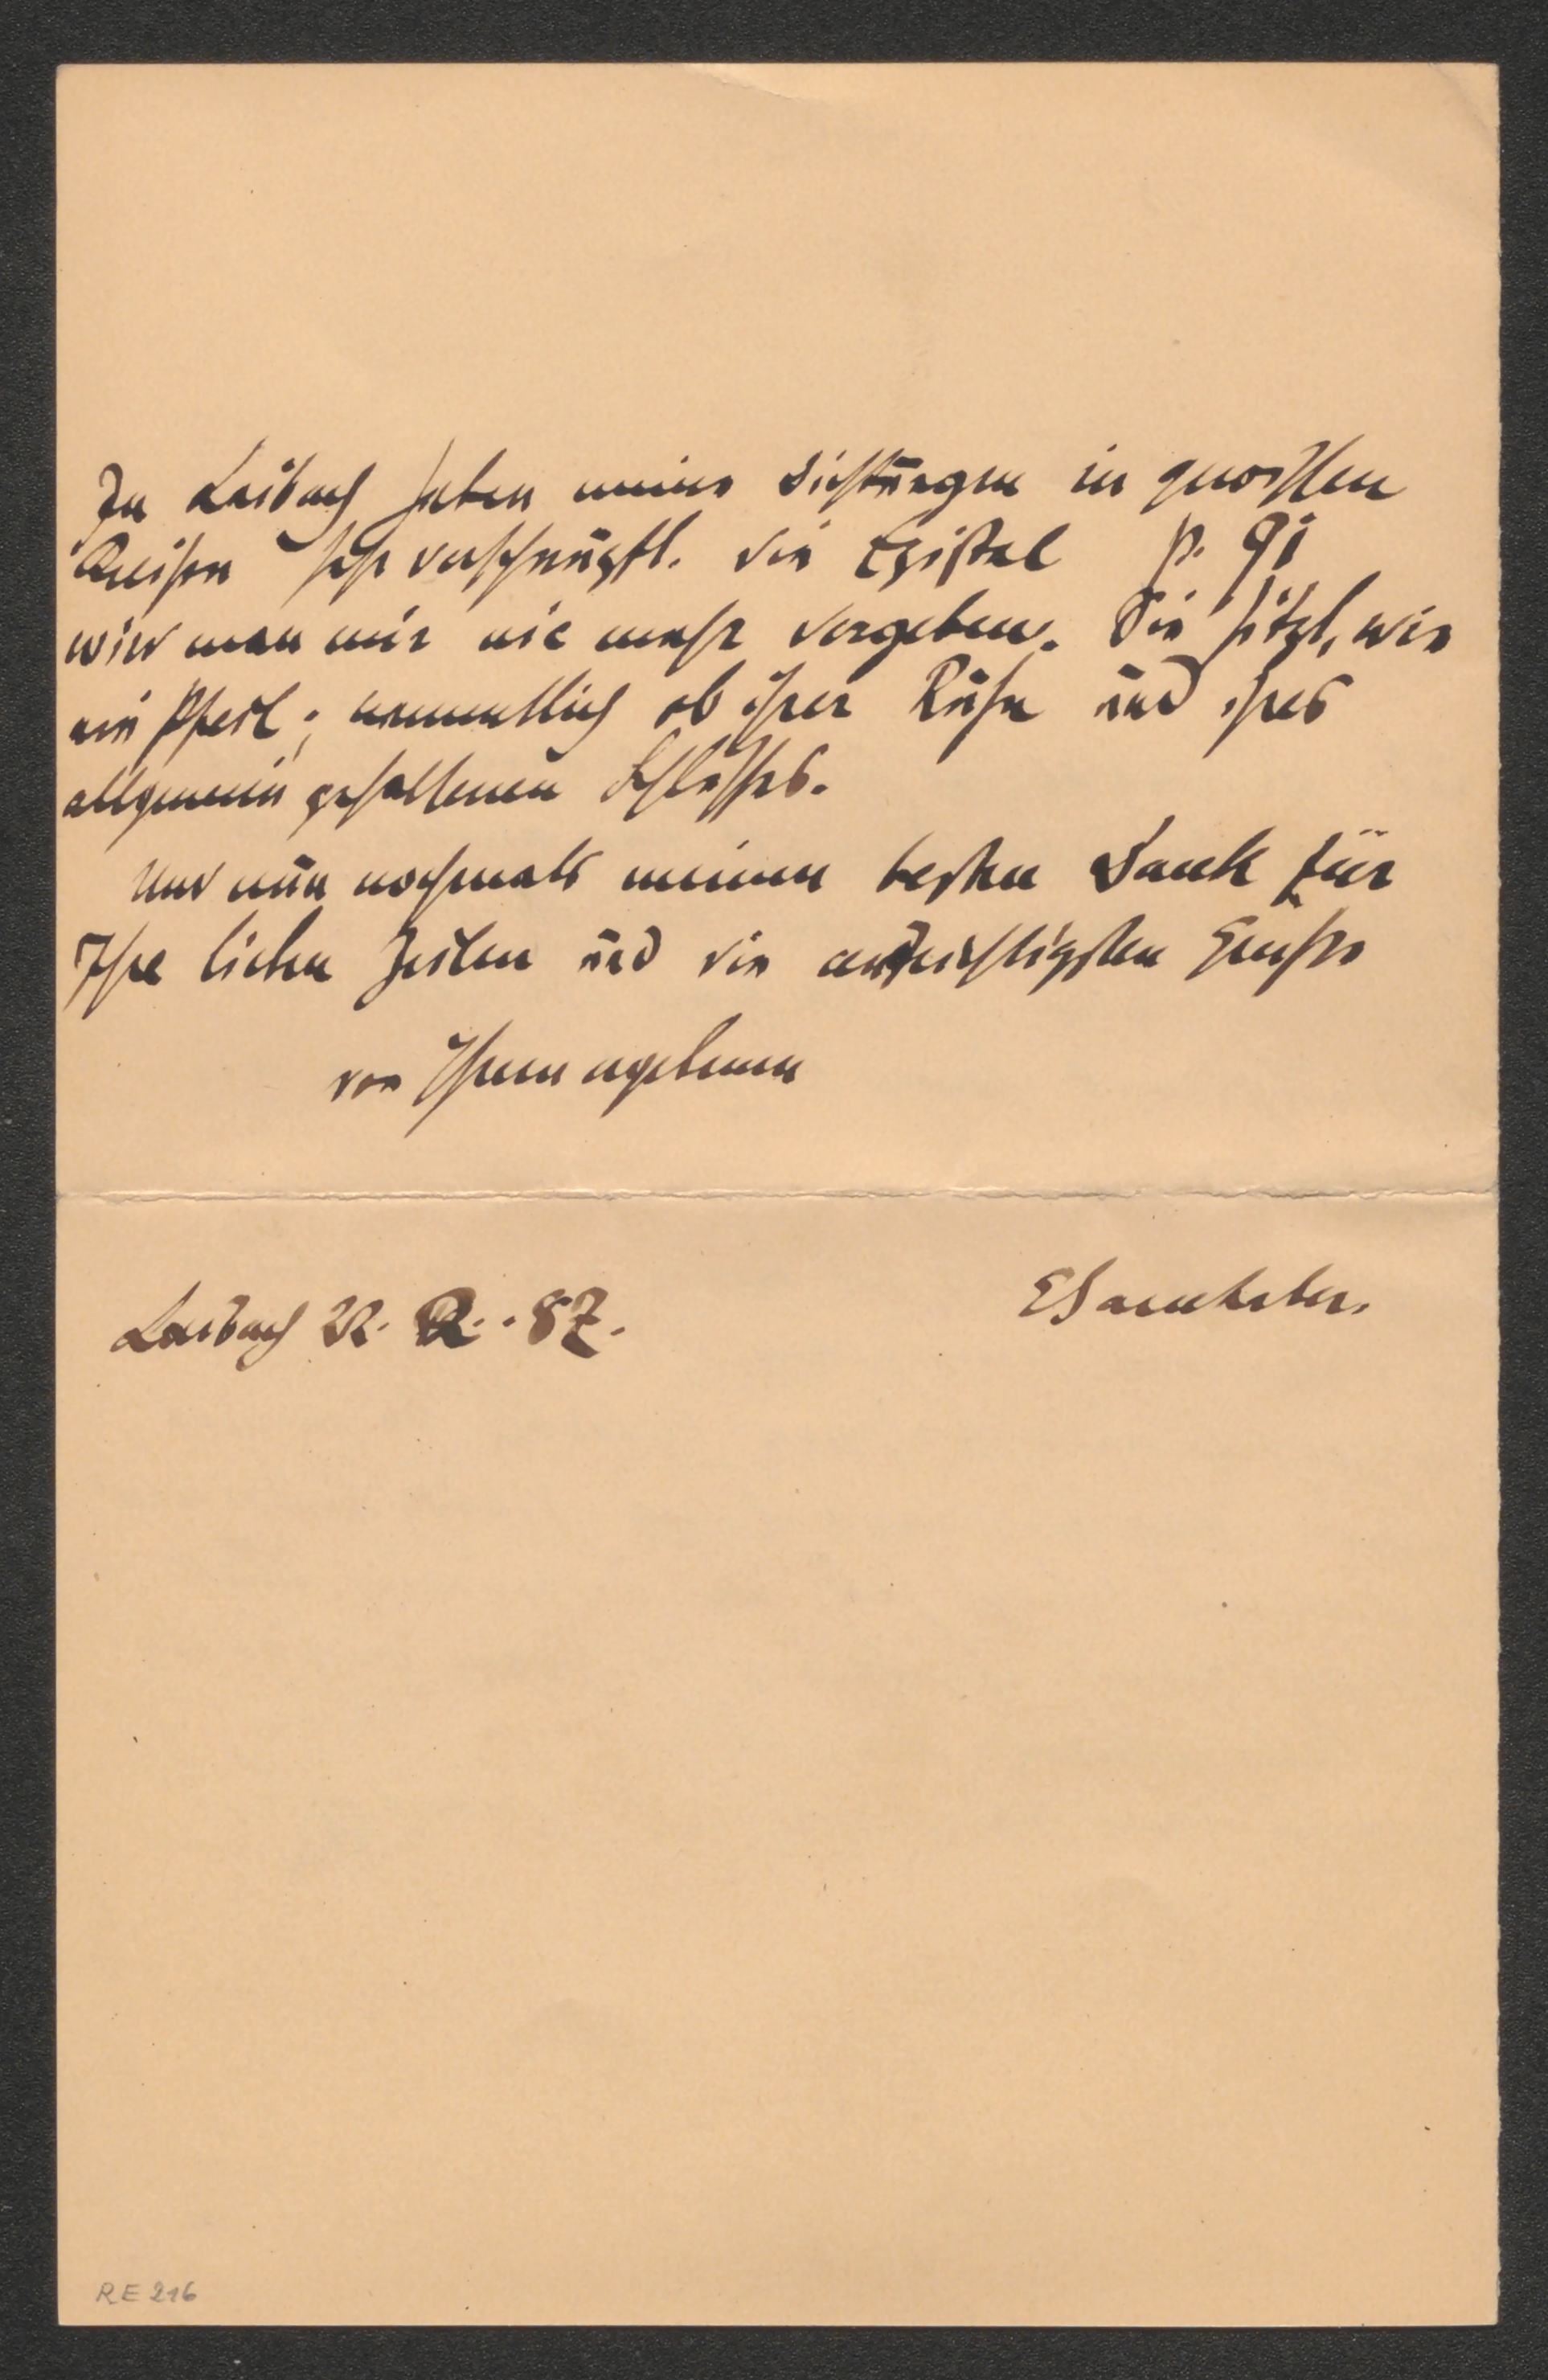 In Laibach haben meine Dichtungen in grossen
Kreisen sehr verschnupft. Die Epistel p. 91
wird man mir nie mehr vergeben. Sie sitzt, wie
ein Pfeil; namentlich ob ihrer Ruhe und ihres
allgemein gehaltenen Schlusses.
Und nun nochmals meinen besten Dank für
Ihre lieben Zeilen und die aufrichtigsten Grüsse
von Ihrem ergebenen
ESamhaber.
Laibach 22. 2. 87.
RE 216